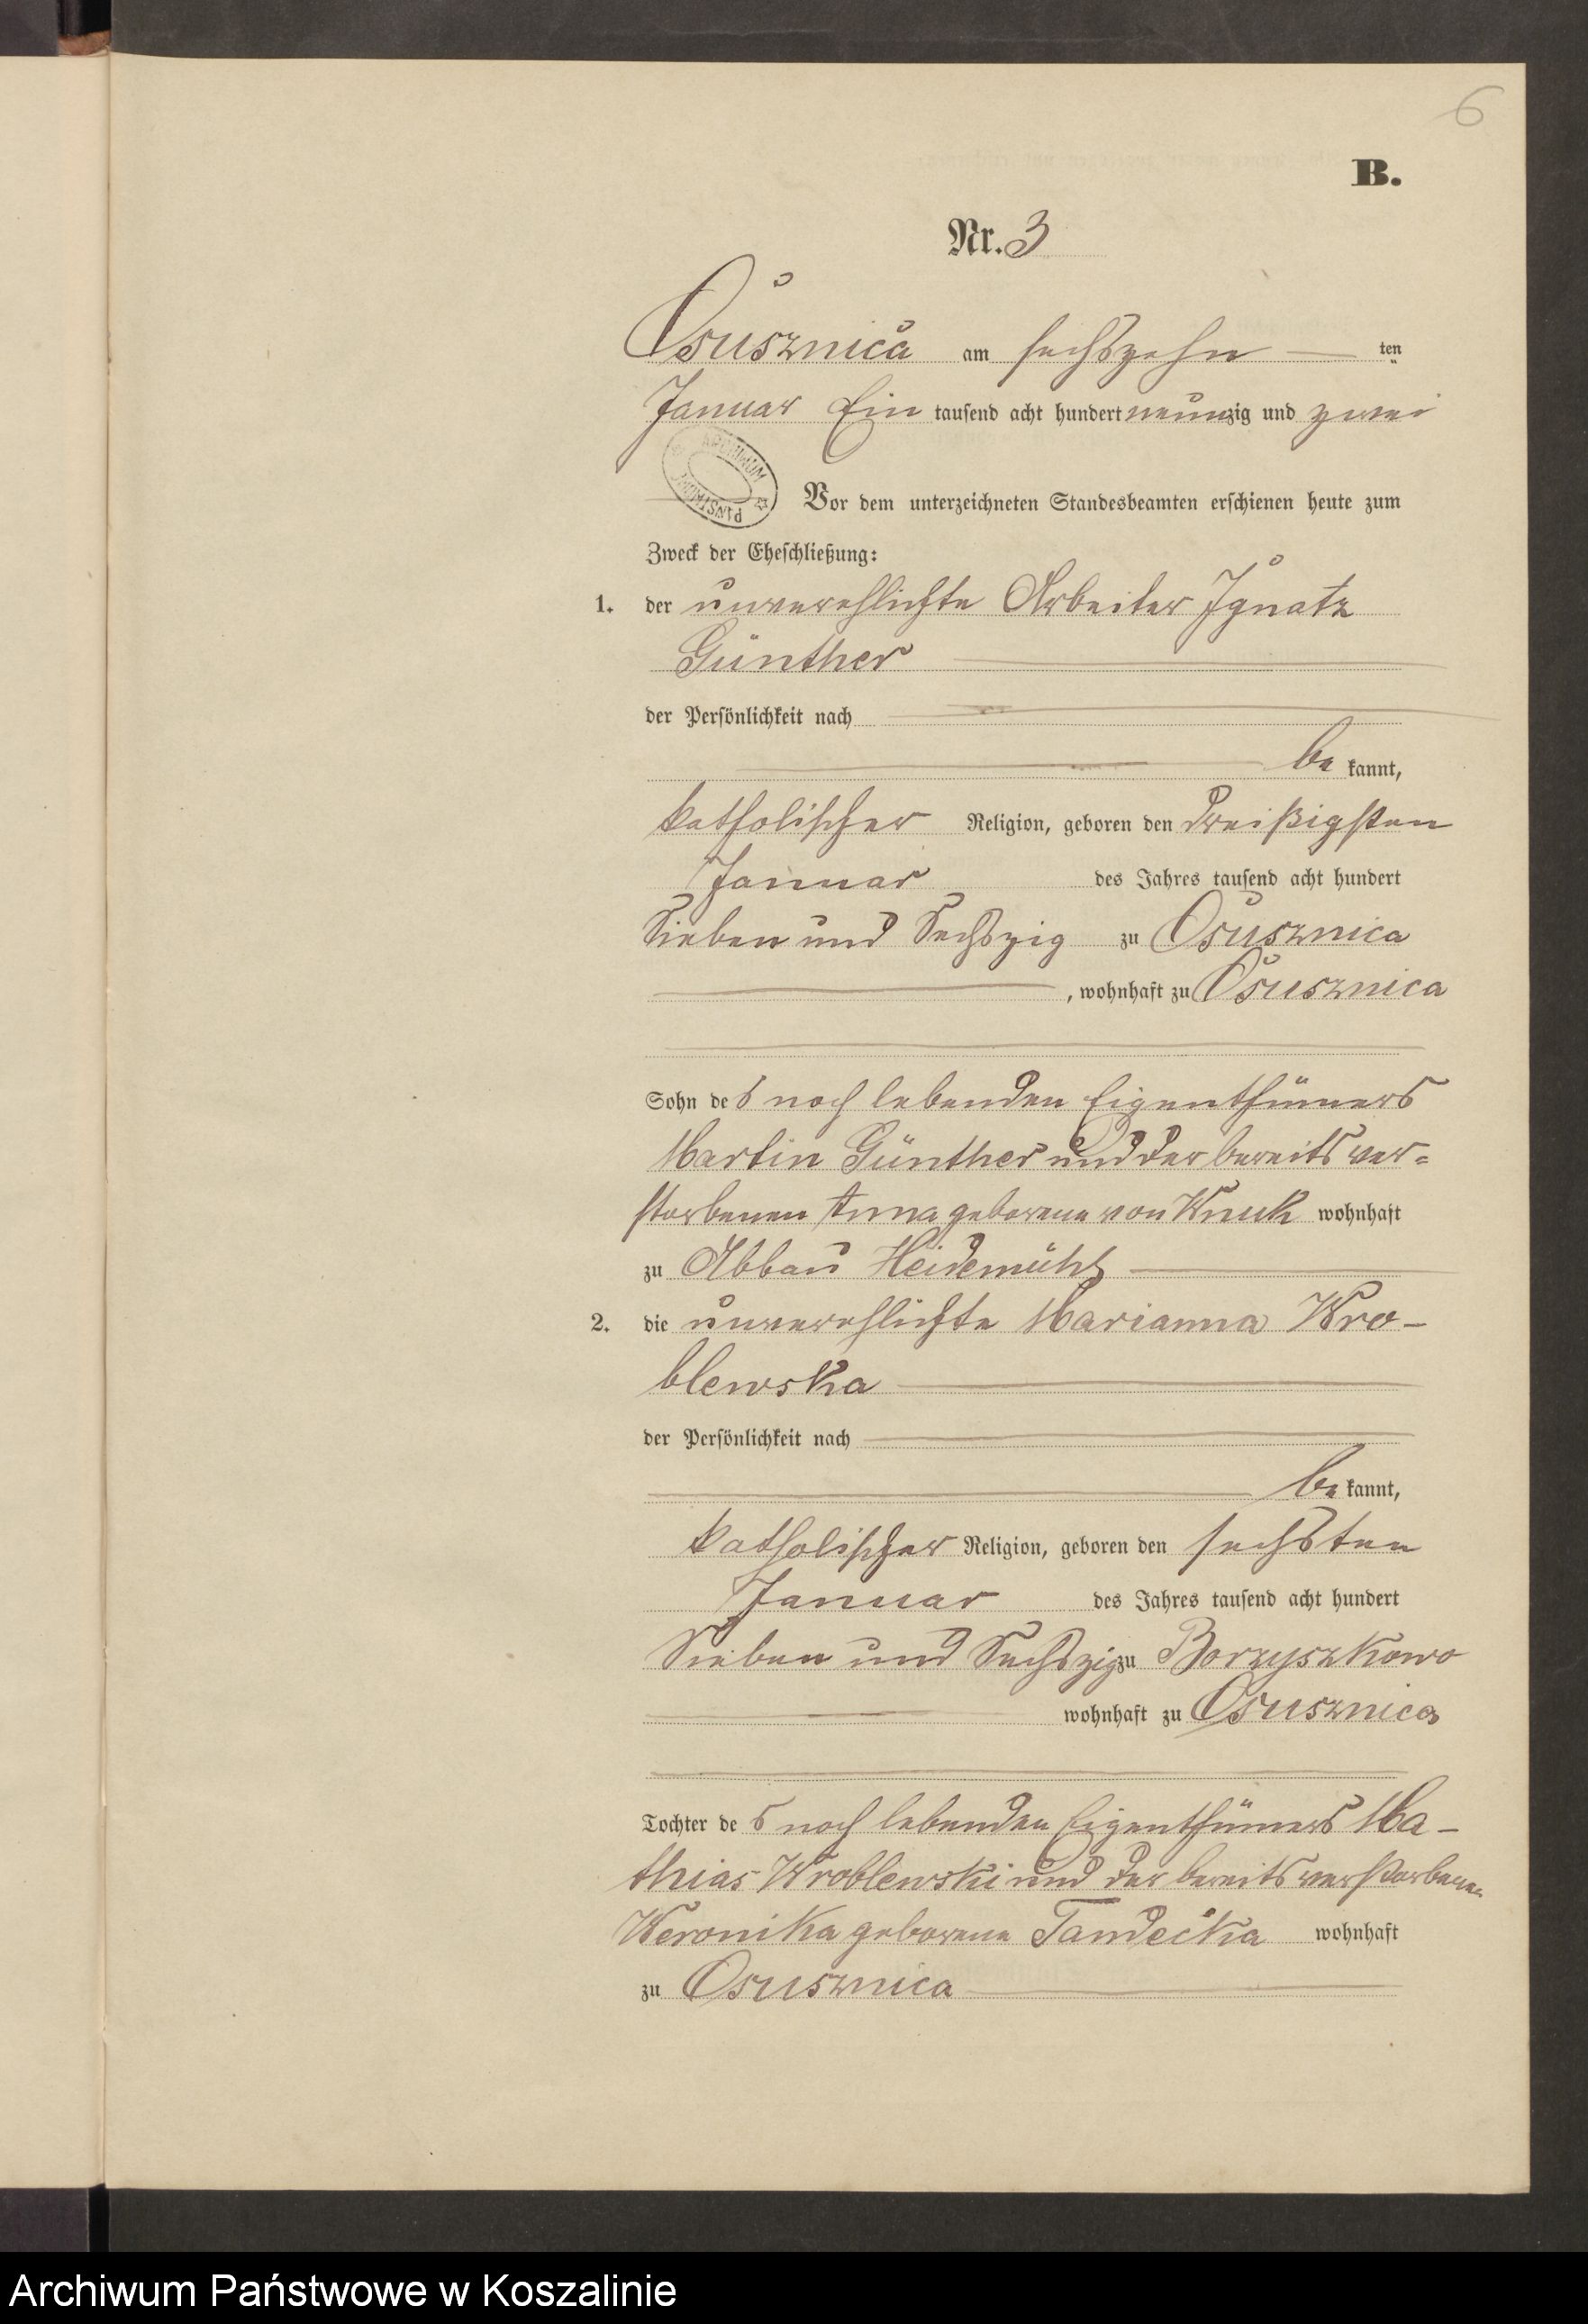 6
B.
Nr. 3
Osusznica am sechszehn ten
Januar Ein tausend acht hundert neunzig und zwei
ARCHIWUM PAŃSTWOWE
Vor dem unterzeichneten Standesbeamten erschienen heute zum
Zweck der Eheschließung:
1. der unverehlichte Arbeiter Ignatz
Günther
der Persönlichkeit nach
be kannt,
katholischer Religion, geboren den dreißigsten
Januar des Jahres tausend acht hundert
Sieben und Sechszig zu Osusznica
, wohnhaft zu Osusznica
Sohn des noch lebenden Eigenthümers
Martin Günther und der bereits ver=
storbenen Anna geborene von Wnuk wohnhaft
zu Abbau Heidemühl
2. die unverehlichte Marianna Wro-
blewska
der Persönlichkeit nach
be kannt,
katholischer Religion, geboren den sechsten
Januar des Jahres tausend acht hundert
Sieben und Sechszig zu Borzyszkowo
wohnhaft zu Osusznica
Tochter des noch lebenden Eigenthümers Ma-
thias Wroblewski und der bereits verstorbenen
Weronika geborene Tandecka wohnhaft
zu Osusznica
Archiwum Państwowe w Koszalinie